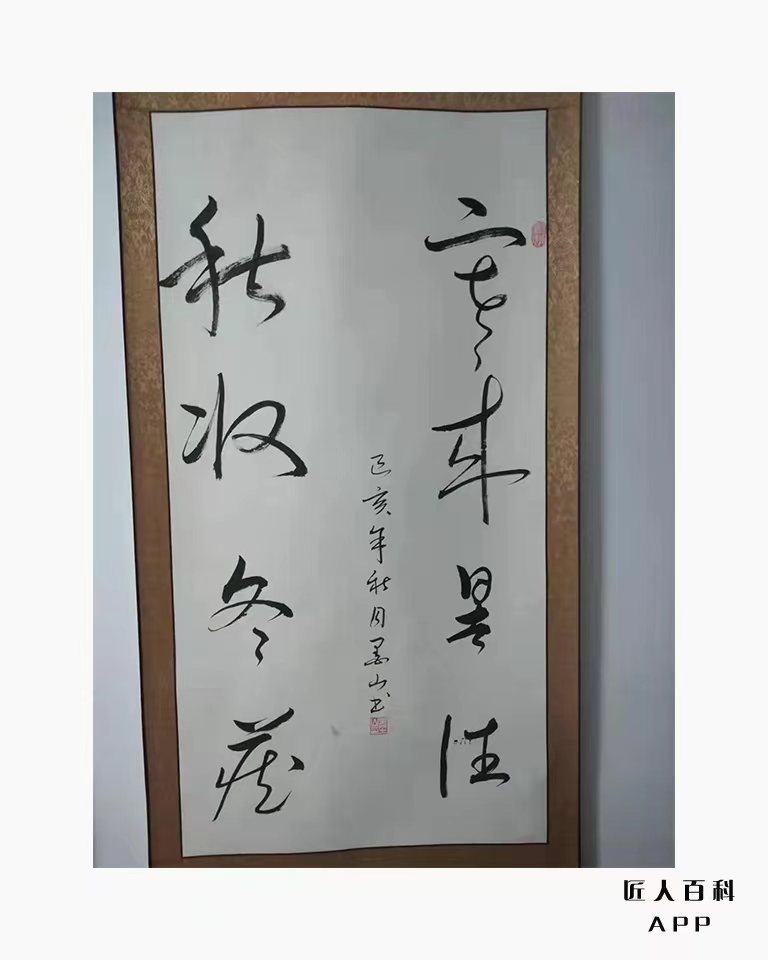 寒来暑往
秋收冬藏
己亥年秋月墨山书
匠人百科
APP